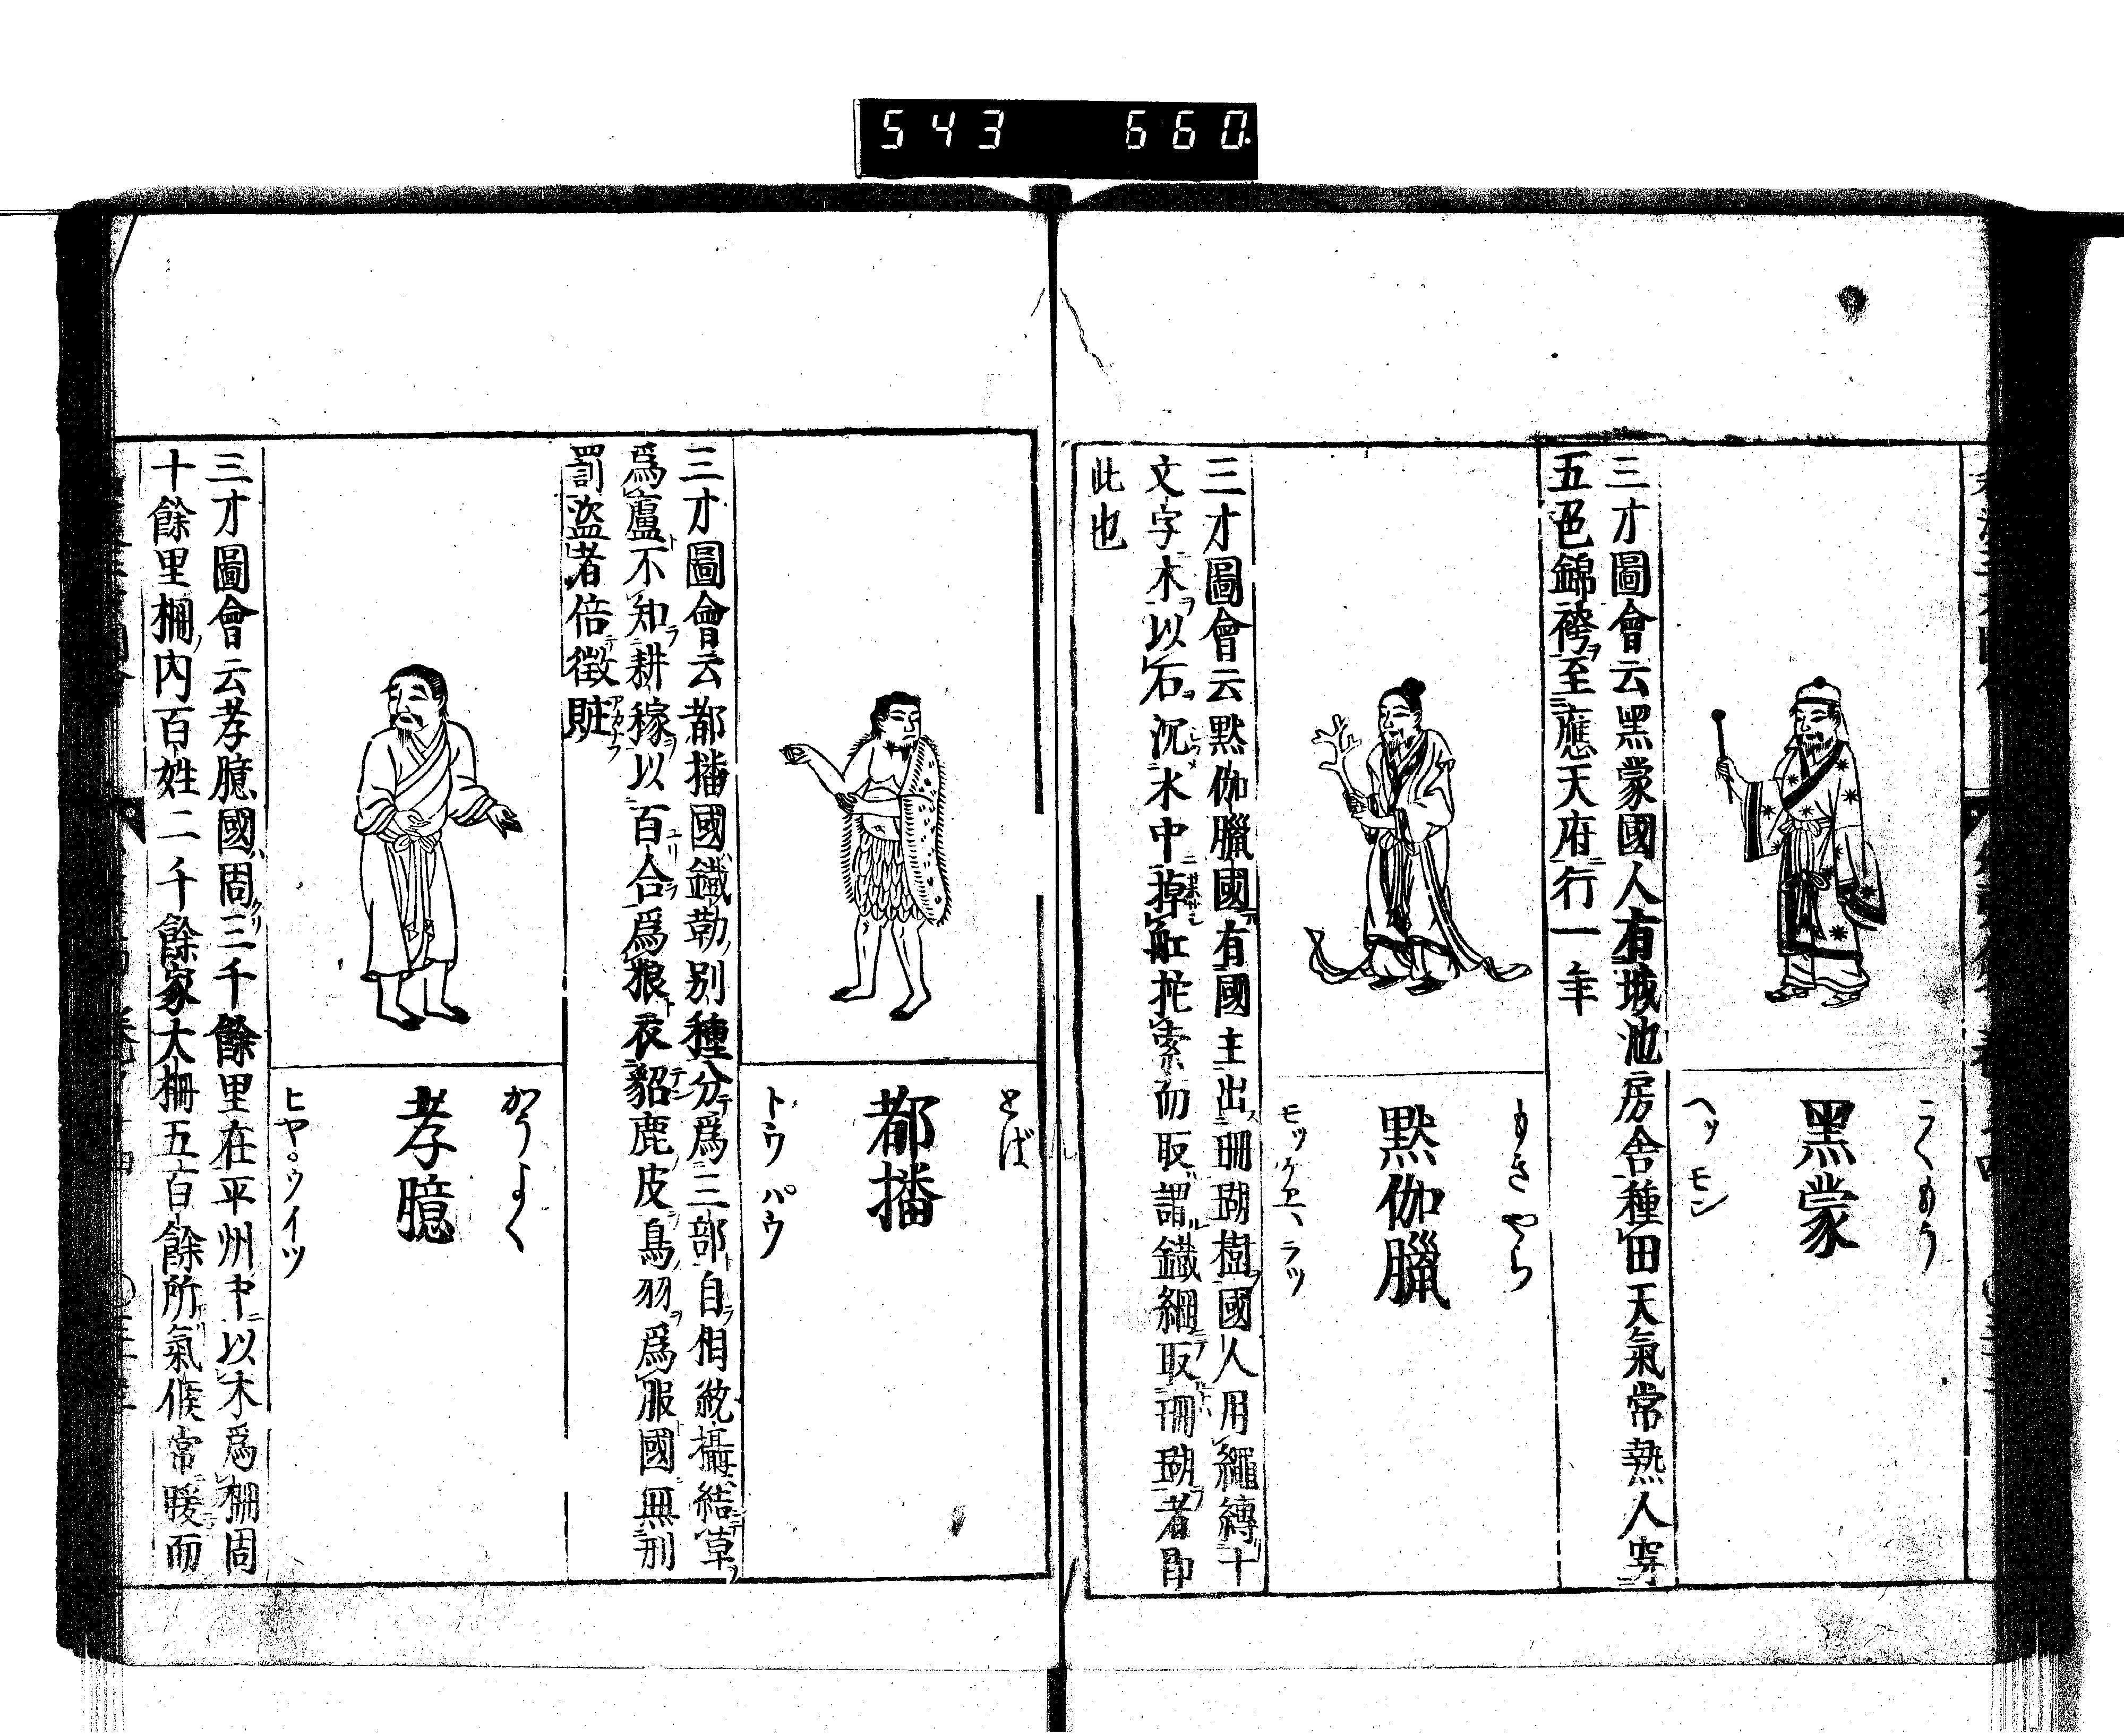 543 660
こくもう
黒蒙
ヘッ モン
三才圖會云黒蒙國人有城池房舎種田天氣常熱人穿
五色錦袴至應天府行一年
もきやら
黙伽臘
三才圖會云黙伽臘國有國主出珊瑚樹國人用繩縛十
文字木以石沉水中掉舡拕索而取謂鐵網取珊瑚者即
此也
とば
都播
トウ パウ
三才圖會云都播國鐵勒別種分爲三部自相統攝結草
爲廬不知耕稼以百合爲粮衣貂鹿皮鳥羽爲服國無刑
罰盗者倍徴賍
かうよく
孝臆
ヒヤ゜ウイツ
三才圖會云孝臆國周三千餘里在平州中以木爲柵周
十餘里柵内百姓二千餘家大柵五百餘所氣候常暖而